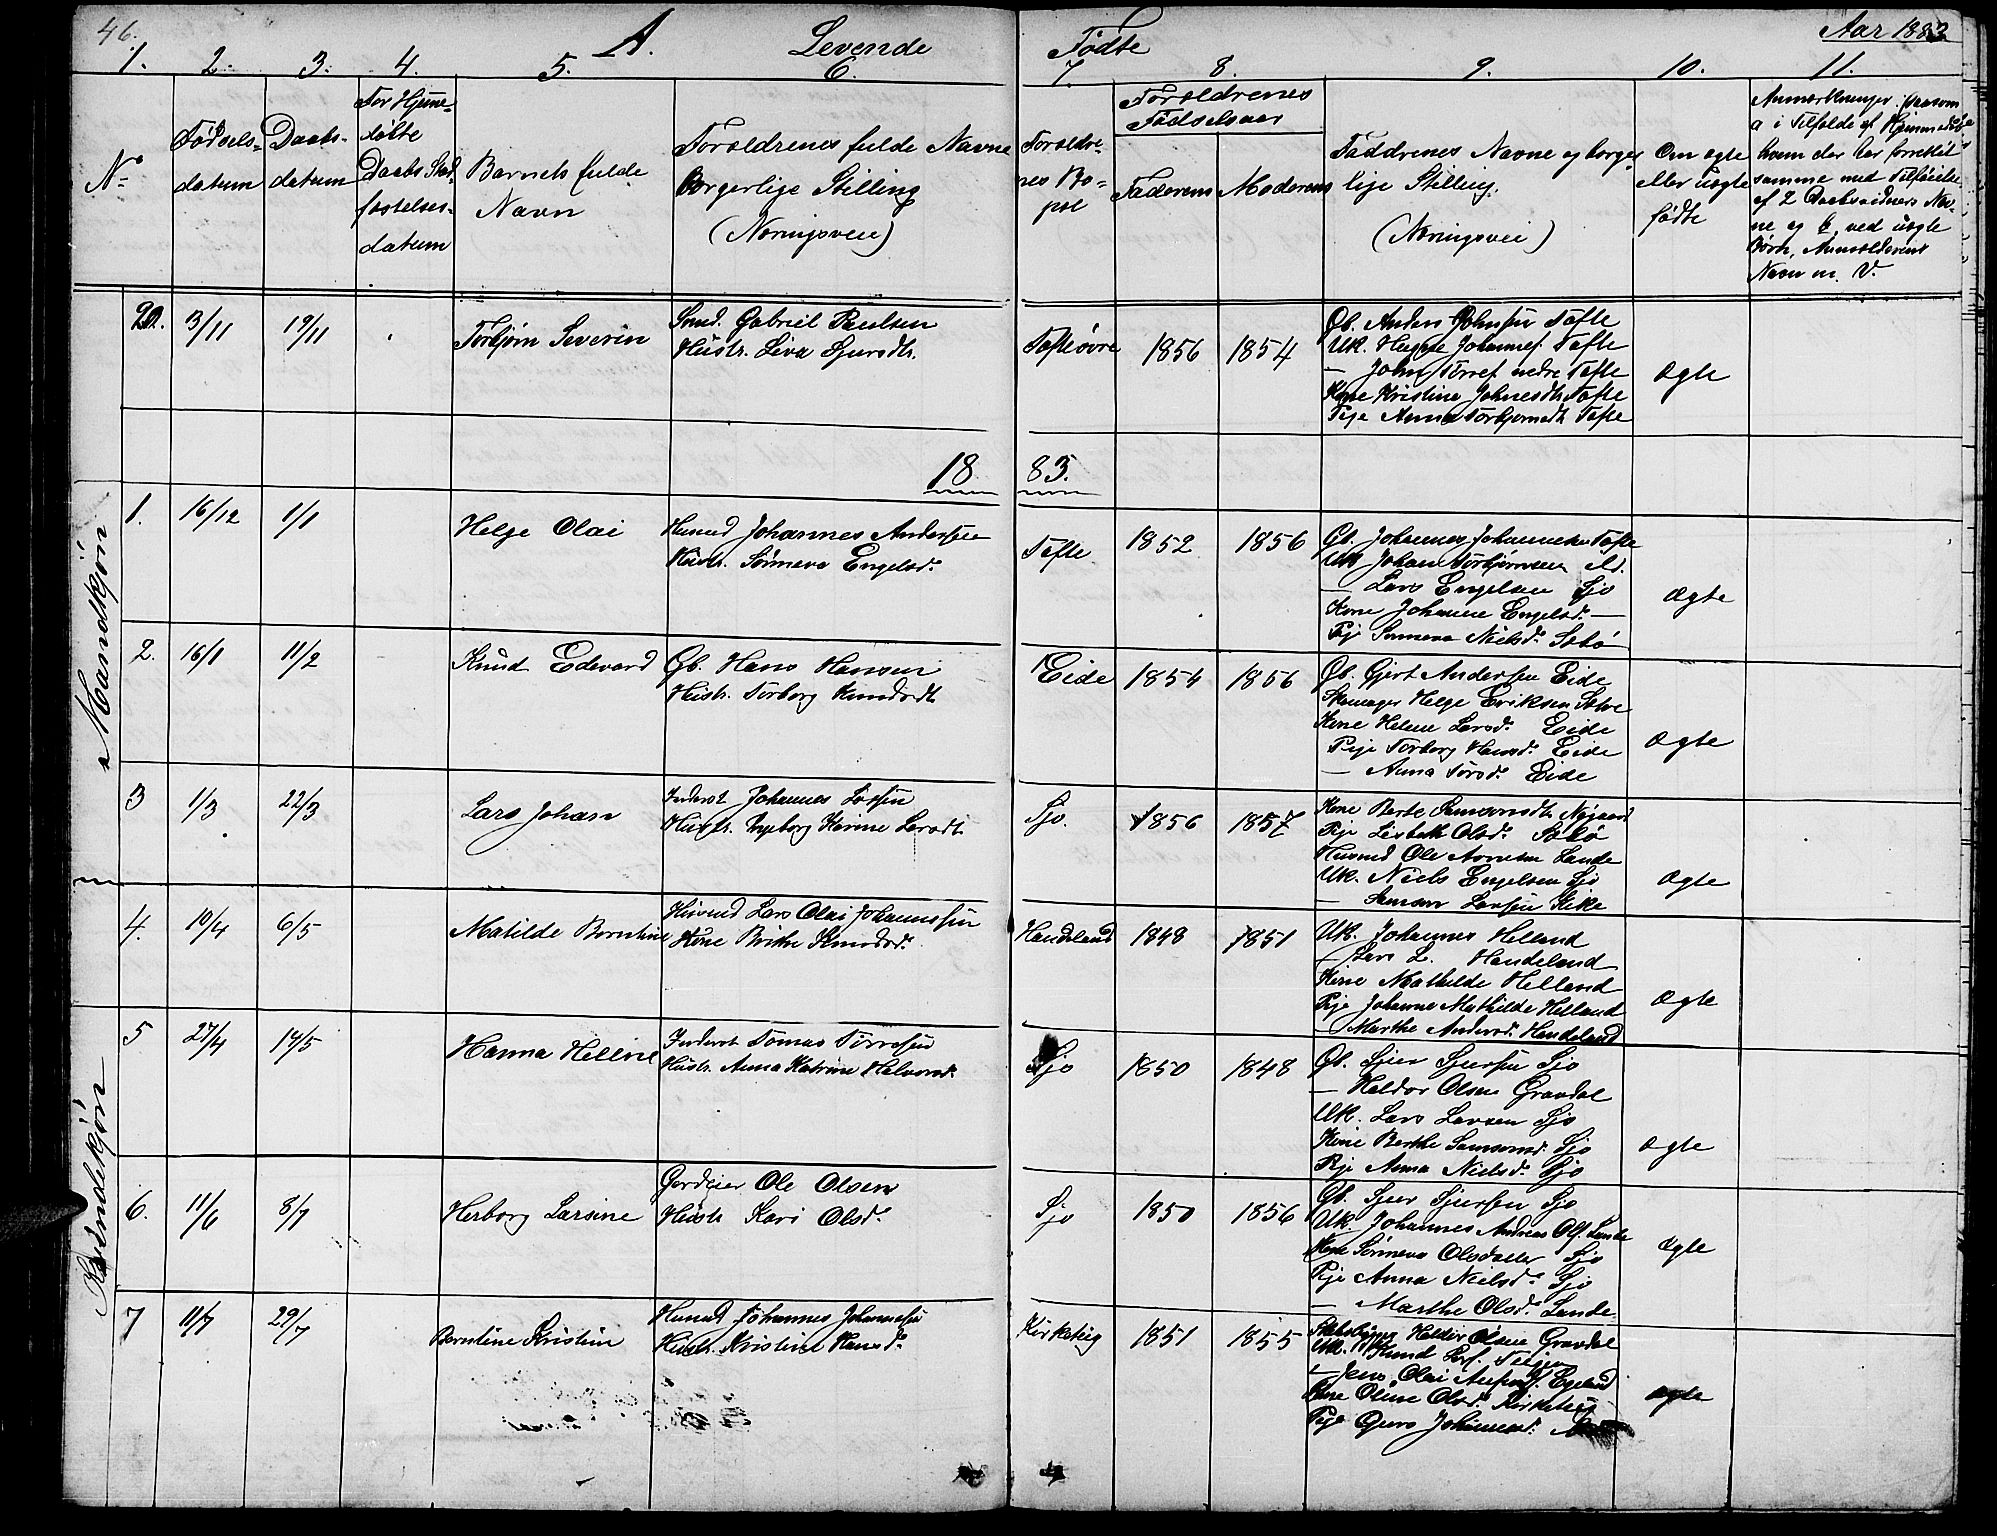 46.
A. Levende Fødte
Aar 1883
1. 2. 3. 4. 5. 6. 7. 8. 9. 10. 11.
No
Fødsels-
datum
Daabs-
datum
For Hjemme-
døbte
Daabs Stad-
fæstelses-
datum
Barnets fulde
Navn
Forældrenes fulde Navne
Borgerlige Stilling
(Næringsvei)
Forældre-
nes Bo-
pæl
Forældrenes
Fødselsaar
Faderens Moderens
Faddrenes Navne og borger
lige Stilling.
(Næringsvei)
Om ægte
eller uægte
fødte
Anmærkninger, saasom
a i Tilfælde af Hjemmedåb
hvem der har forrettet
samme med Tilføielse
af 2 Daabsvidners Nav-
ne og b, ved uægte
Børn, Anmelderens
Navn m. V.
20. 3/11 19/11 Torbjørn Severin
Gabriel Paulsen
Hustr. Siva Sjursdtr.
Tofte øvre 1856 1854
Gb. Anders Johnsen Tofte
Uk. Johannes. Tofte
— John nedre Tofte
Kone Kristine Johnesdtr Tofte
Pige Anna Torbjørnsdtr Tofte
ægte
1883.
Mandkjøn
1. 16/12 1/1 Helge Olai
Husmd Johannes Andersen
Hustr. Sønneva Engelsd.
Tofte 1852 1856
Gb. Johannes Johannesen Tofte
Uk Johan Torbjørnsen
— Lars Engelsen Sjo
Kone Johanne Engelsd. —
Pige Sønneva Nielsd. Sæbø
ægte
2. 16/1 11/2 Knud Edevard
Gb. Hans Hansen
Hustr. Torborg Knudsdtr
Eide 1854 1856
Gb. Gjert Andersen Eide
Skomager Helge Eriksen
Kone Helene Larsd. Eide
Pige Torborg Hansd. Eide
— Anna Eide
ægte
3 1/3 22/3 Lars Johan
Inderst Johannes
Hustr. Ingeborg Karine Larsdtr
Sjo. 1856 1857
Kone Berte Samsonsdtr Nygaard
Pige Lisbeth Olsd. Sæbø
Husmd Ole Lande
Uk. Niels Engelsen Sjo
— Samson Larsen
ægte
4. 10/4 6/5 Matilde Berntine
Husmd Lars Olai Johannessen
Kone Brithe Knudsd.
Handeland 1848 1851
Uk. Johannes Helland
— Lars L. Handeland
Kone Mathilde Helland
Pige Johanne Mathilde Helland
— Marthe Andersd. Handeland
ægte
Kvindekjøn
5 27/4 14/5 Hanna Helline
Inderst Tomas Torresen
Hustr. Anna Katrine Halvorsd.
Sjo 1850 1848
Gb. Sjur Sjursen Sjo
— Haldor Olsen Gravdal
Uk. Lars Larsen Sjo
Kone Berthe Samsonsd. Sjo
Pige Anna Nielsd. Sjo
ægte
6. 11/6 8/7 Herborg Larsine
Gardeier Ole Olsen
Hustr Kari Olsd.
Sjo 1850 1856
Gb. Sjur Sjursen Sjo
Uk. Johannes Andreas Ols. Lande
Kone Sønneva Olsdatter Sjo
Pige Anna Nielsd. Sjo
— Marthe Olsd. Lande
ægte
7 11/7 29/7 Berntine Kristine
Husmd Johannes Johannessen
Hustr. Kristine Hansd.
Kirketeig 1851 1855
Haldor Olsen Gravdal
Uk. Knud
— Jens Olai Egeland
Kone Oline Olsd. Kirketeig
Pige Guro Johannesd.
ægte